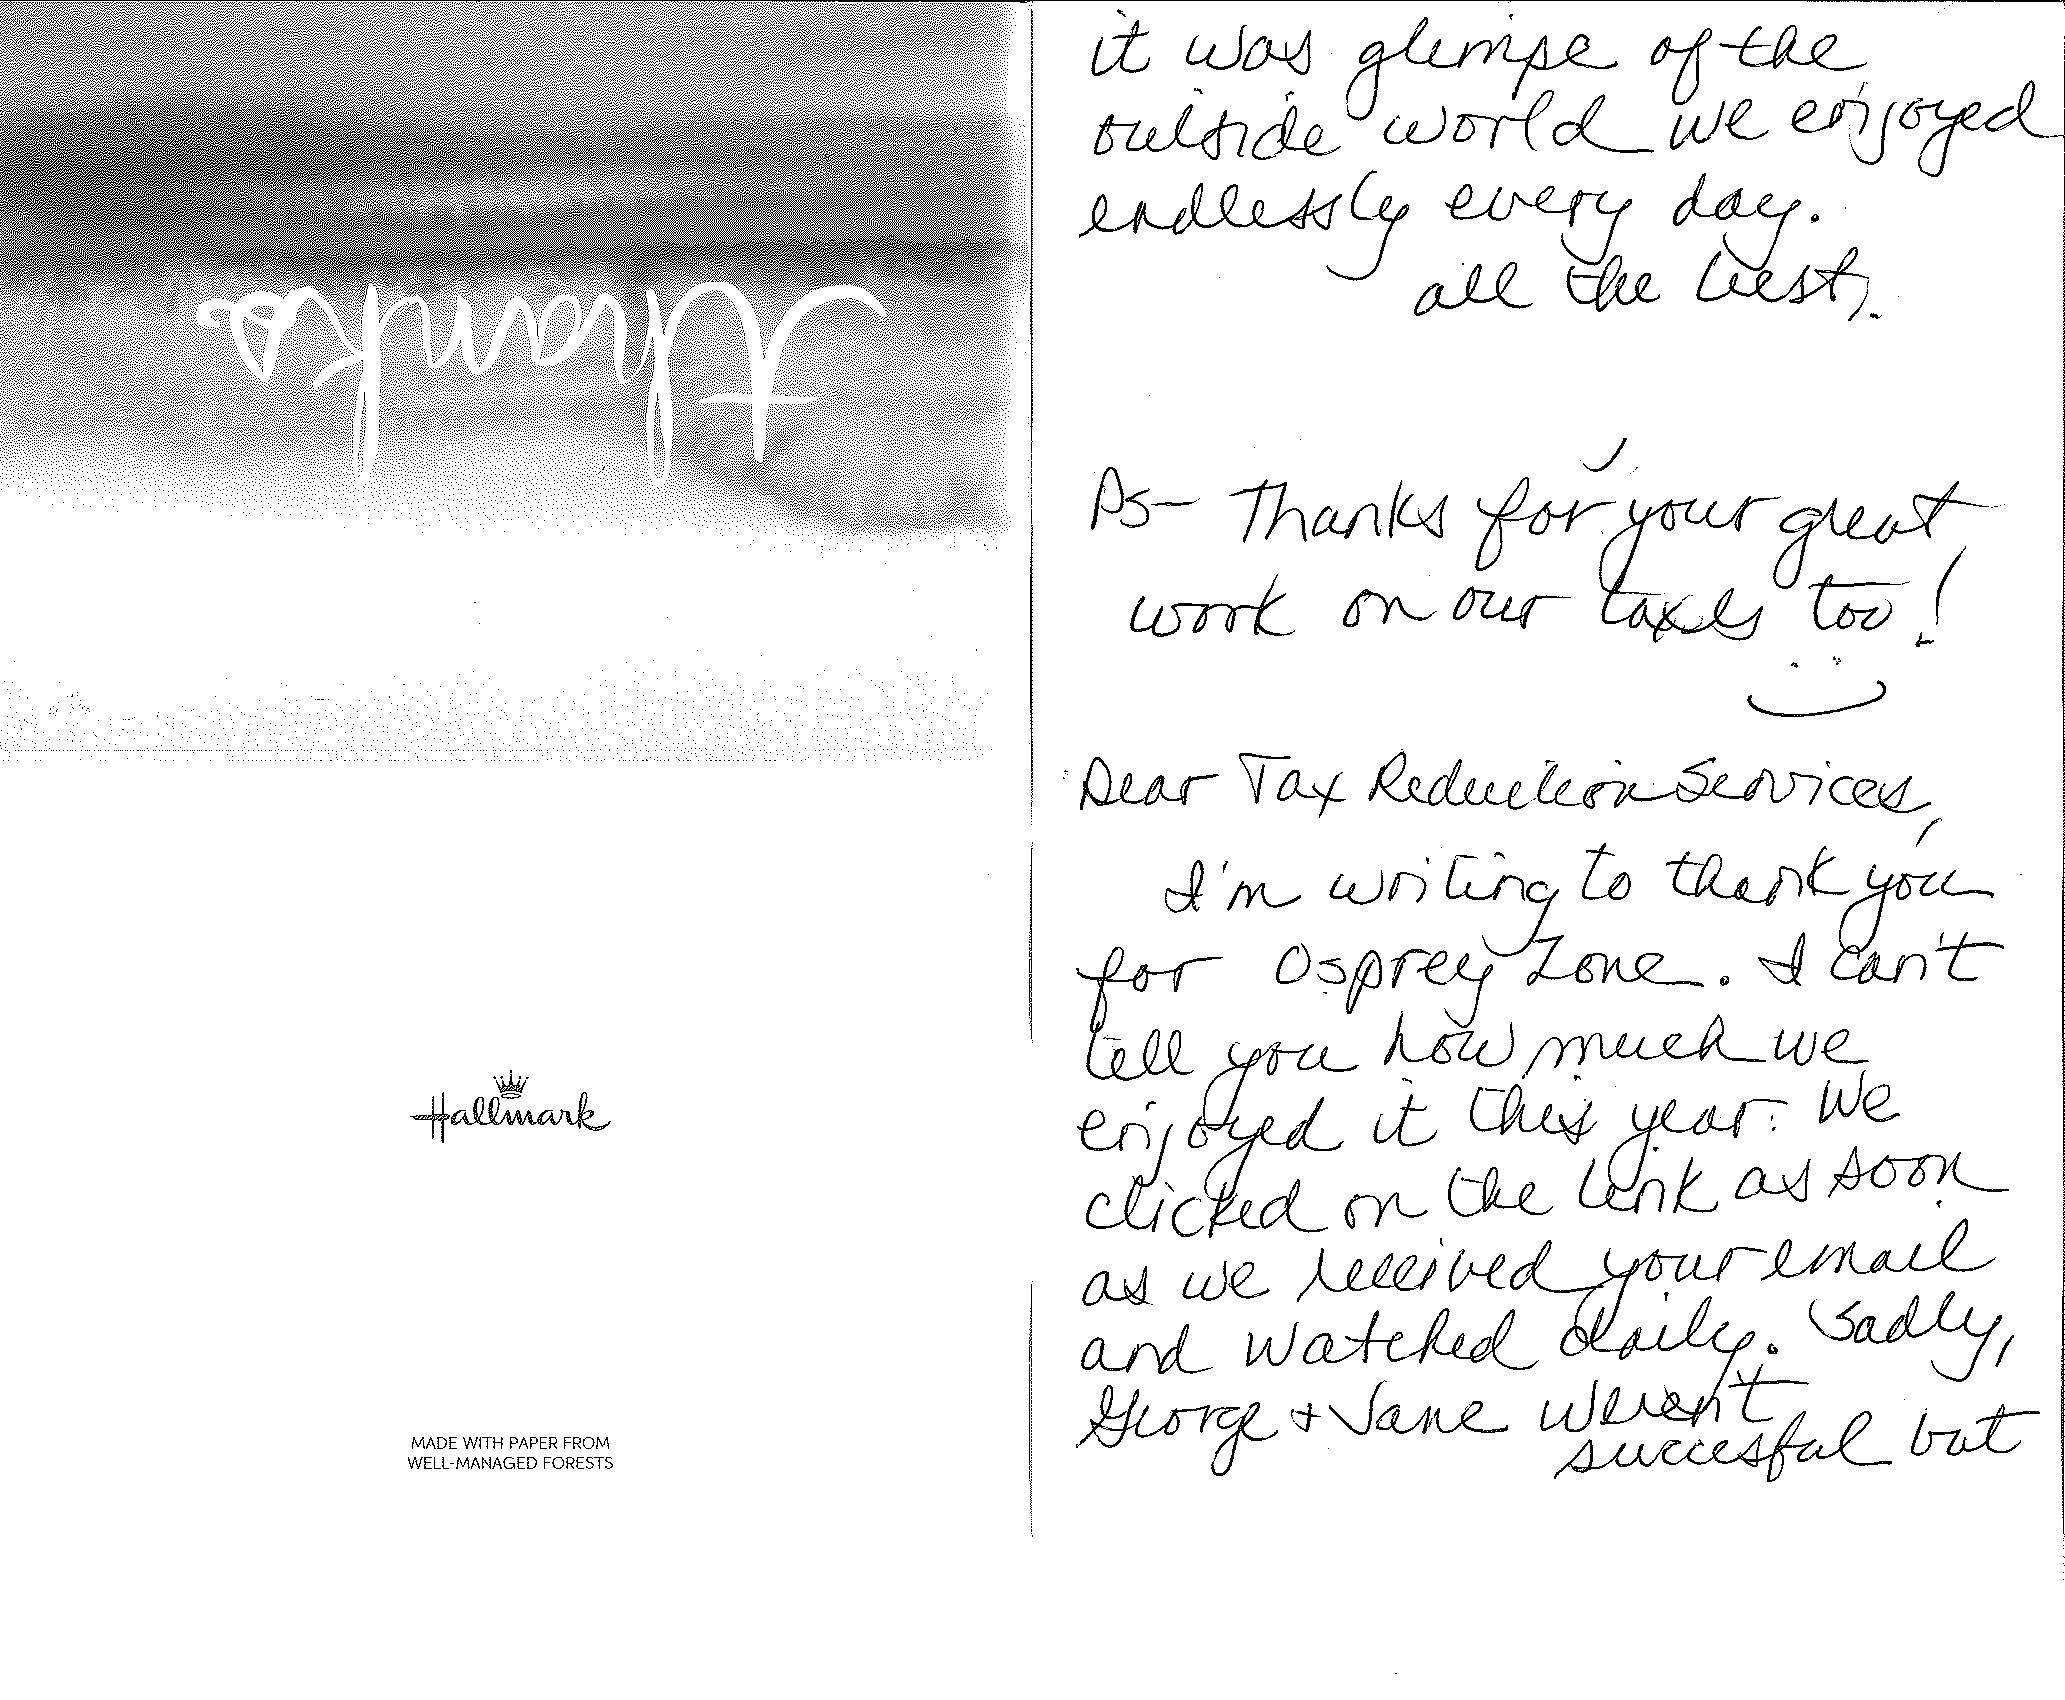 Thanks
Hallmark
MADE WITH PAPER FROM
WELL-MANAGED FORESTS
it was glimpse of the
outside world we enjoyed
endlessly every day.
all the best,
Ps- Thanks for your great
work on our taxes too!
Dear Tax Reduction Services,
I'm writing to thank you
for Osprey Zone. I can't
tell you how much we
enjoyed it this year. We
clicked on the link as soon
as we received your email
and watched daily. Sadly,
George + Jane weren't
succesful but